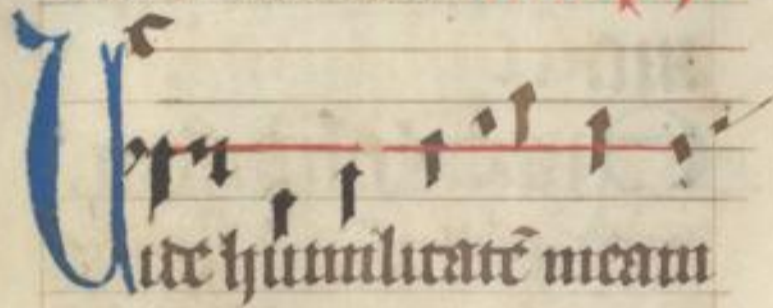 Uide humilitatē meam